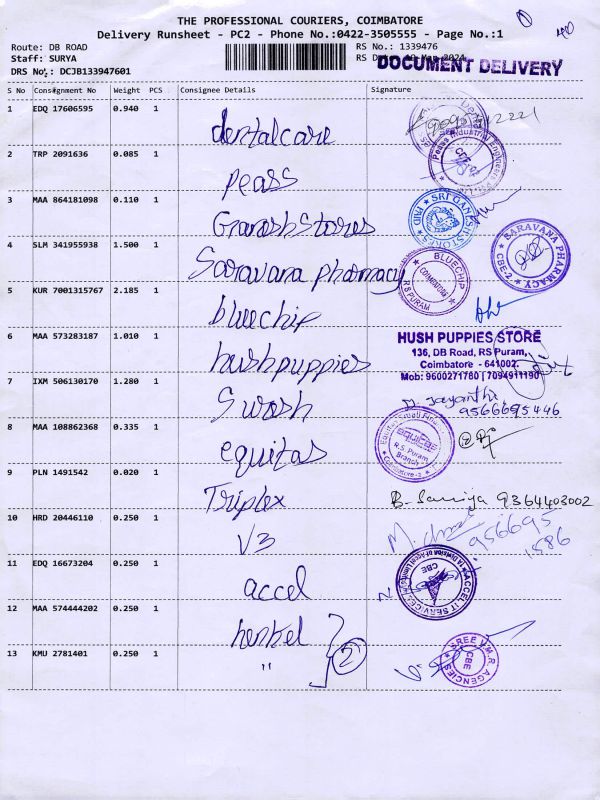 THE PROFESSIONAL COURIERS, COIMBATORE
Delivery Runsheet - PC2 - Phone No.:0422-3505555 - Page No.:1
Route: DB ROAD
Staff: SURYA
DRS No.: DCJB133947601
RS No.: 1339476
DOCUMENT DELIVERY
S No Consignment No Weight PCS Consignee Details Signature
1 EDQ 17606595 0.940 1 dentalcare
2 TRP 2091636 0.085 1 peass
Peass Industrial Engineers
3 MAA 864181098 0.110 1 Ganesh Stores
SRI GANESH STORES
4 SLM 341955938 1.500 1 Saravana pharmacy
SARAVANA PHARMACY CBE-2
5 KUR 7001315767 2.185 1 bluechip
BLUECHIP COIMBATORE R S PURAM
6 MAA 573283187 1.010 1 hushpuppies
HUSH PUPPIES STORE
136, DB Road, RS Puram,
Coimbatore - 641002.
Mob: 9600271780 | 7094911190
7 IXM 506130170 1.280 1 Swash
Jayanthi
9566695446
8 MAA 108862368 0.335 1 equitas
equitas R.S. Puram Branch Coimbatore-2
9 PLN 1491542 0.020 1 Triplex
B. Saniya 9364403002
10 HRD 20446110 0.250 1 V3
956695
1586
11 EDQ 16673204 0.250 1 accel
ACCEL IT SERVICES CBE
12 MAA 574444202 0.250 1 henkel
13 KMU 2781401 0.250 1 " 2
SREE V.M.R. AGENCIES CBE